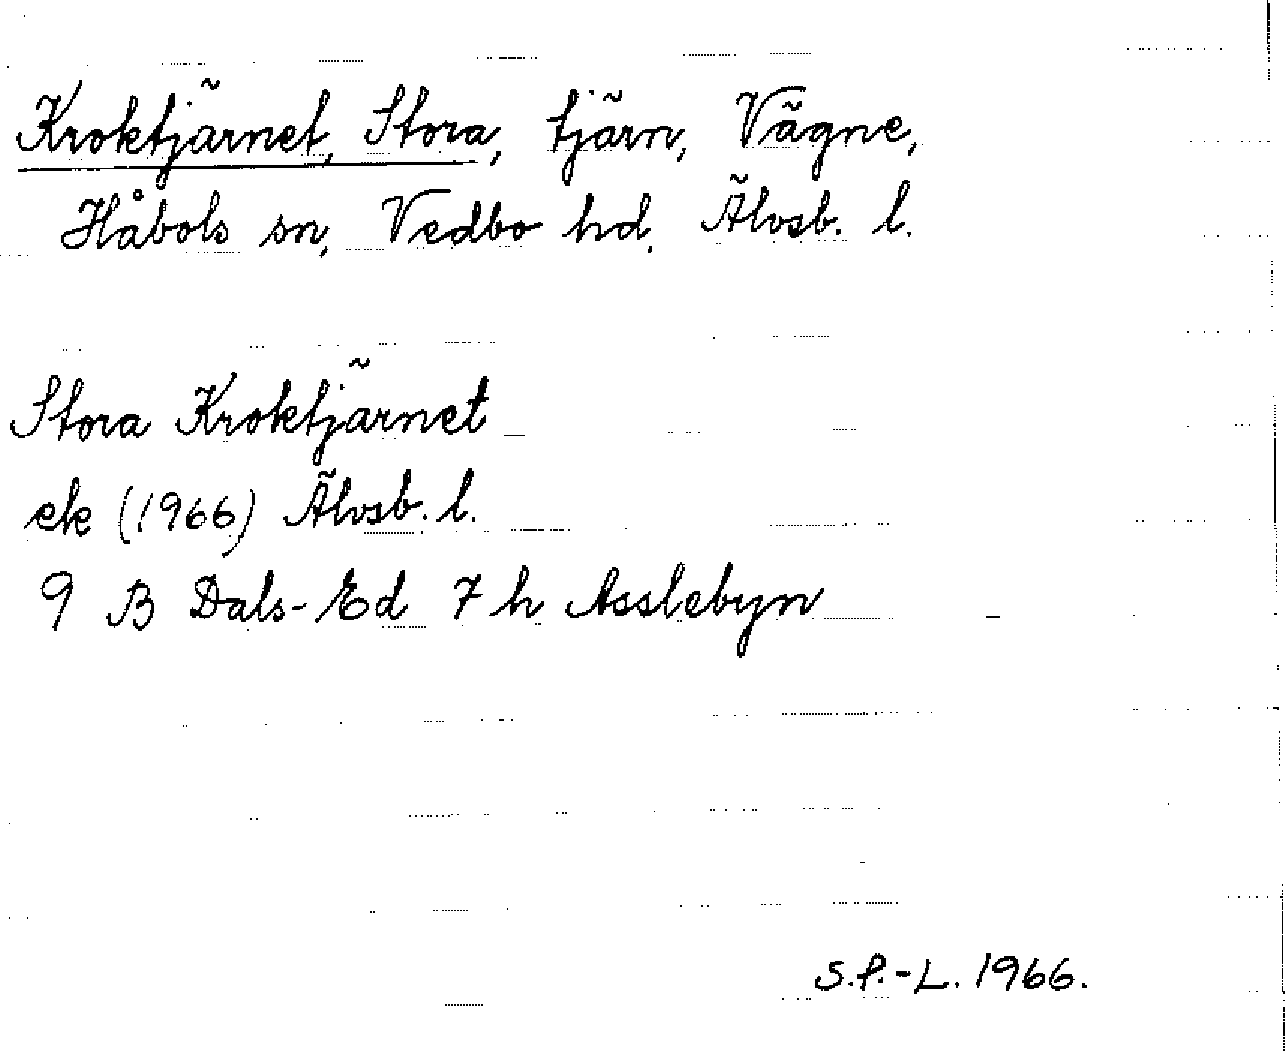 Kroktjärnet, Stora, tjärn, Vägne,
Håbols sn, Vedbo hd, Älvsb. l.
Stora Kroktjärnet
ek (1966) Älvsb. l.
9 B Dals-Ed 7 h Asslebyn
S.P.-L. 1966.